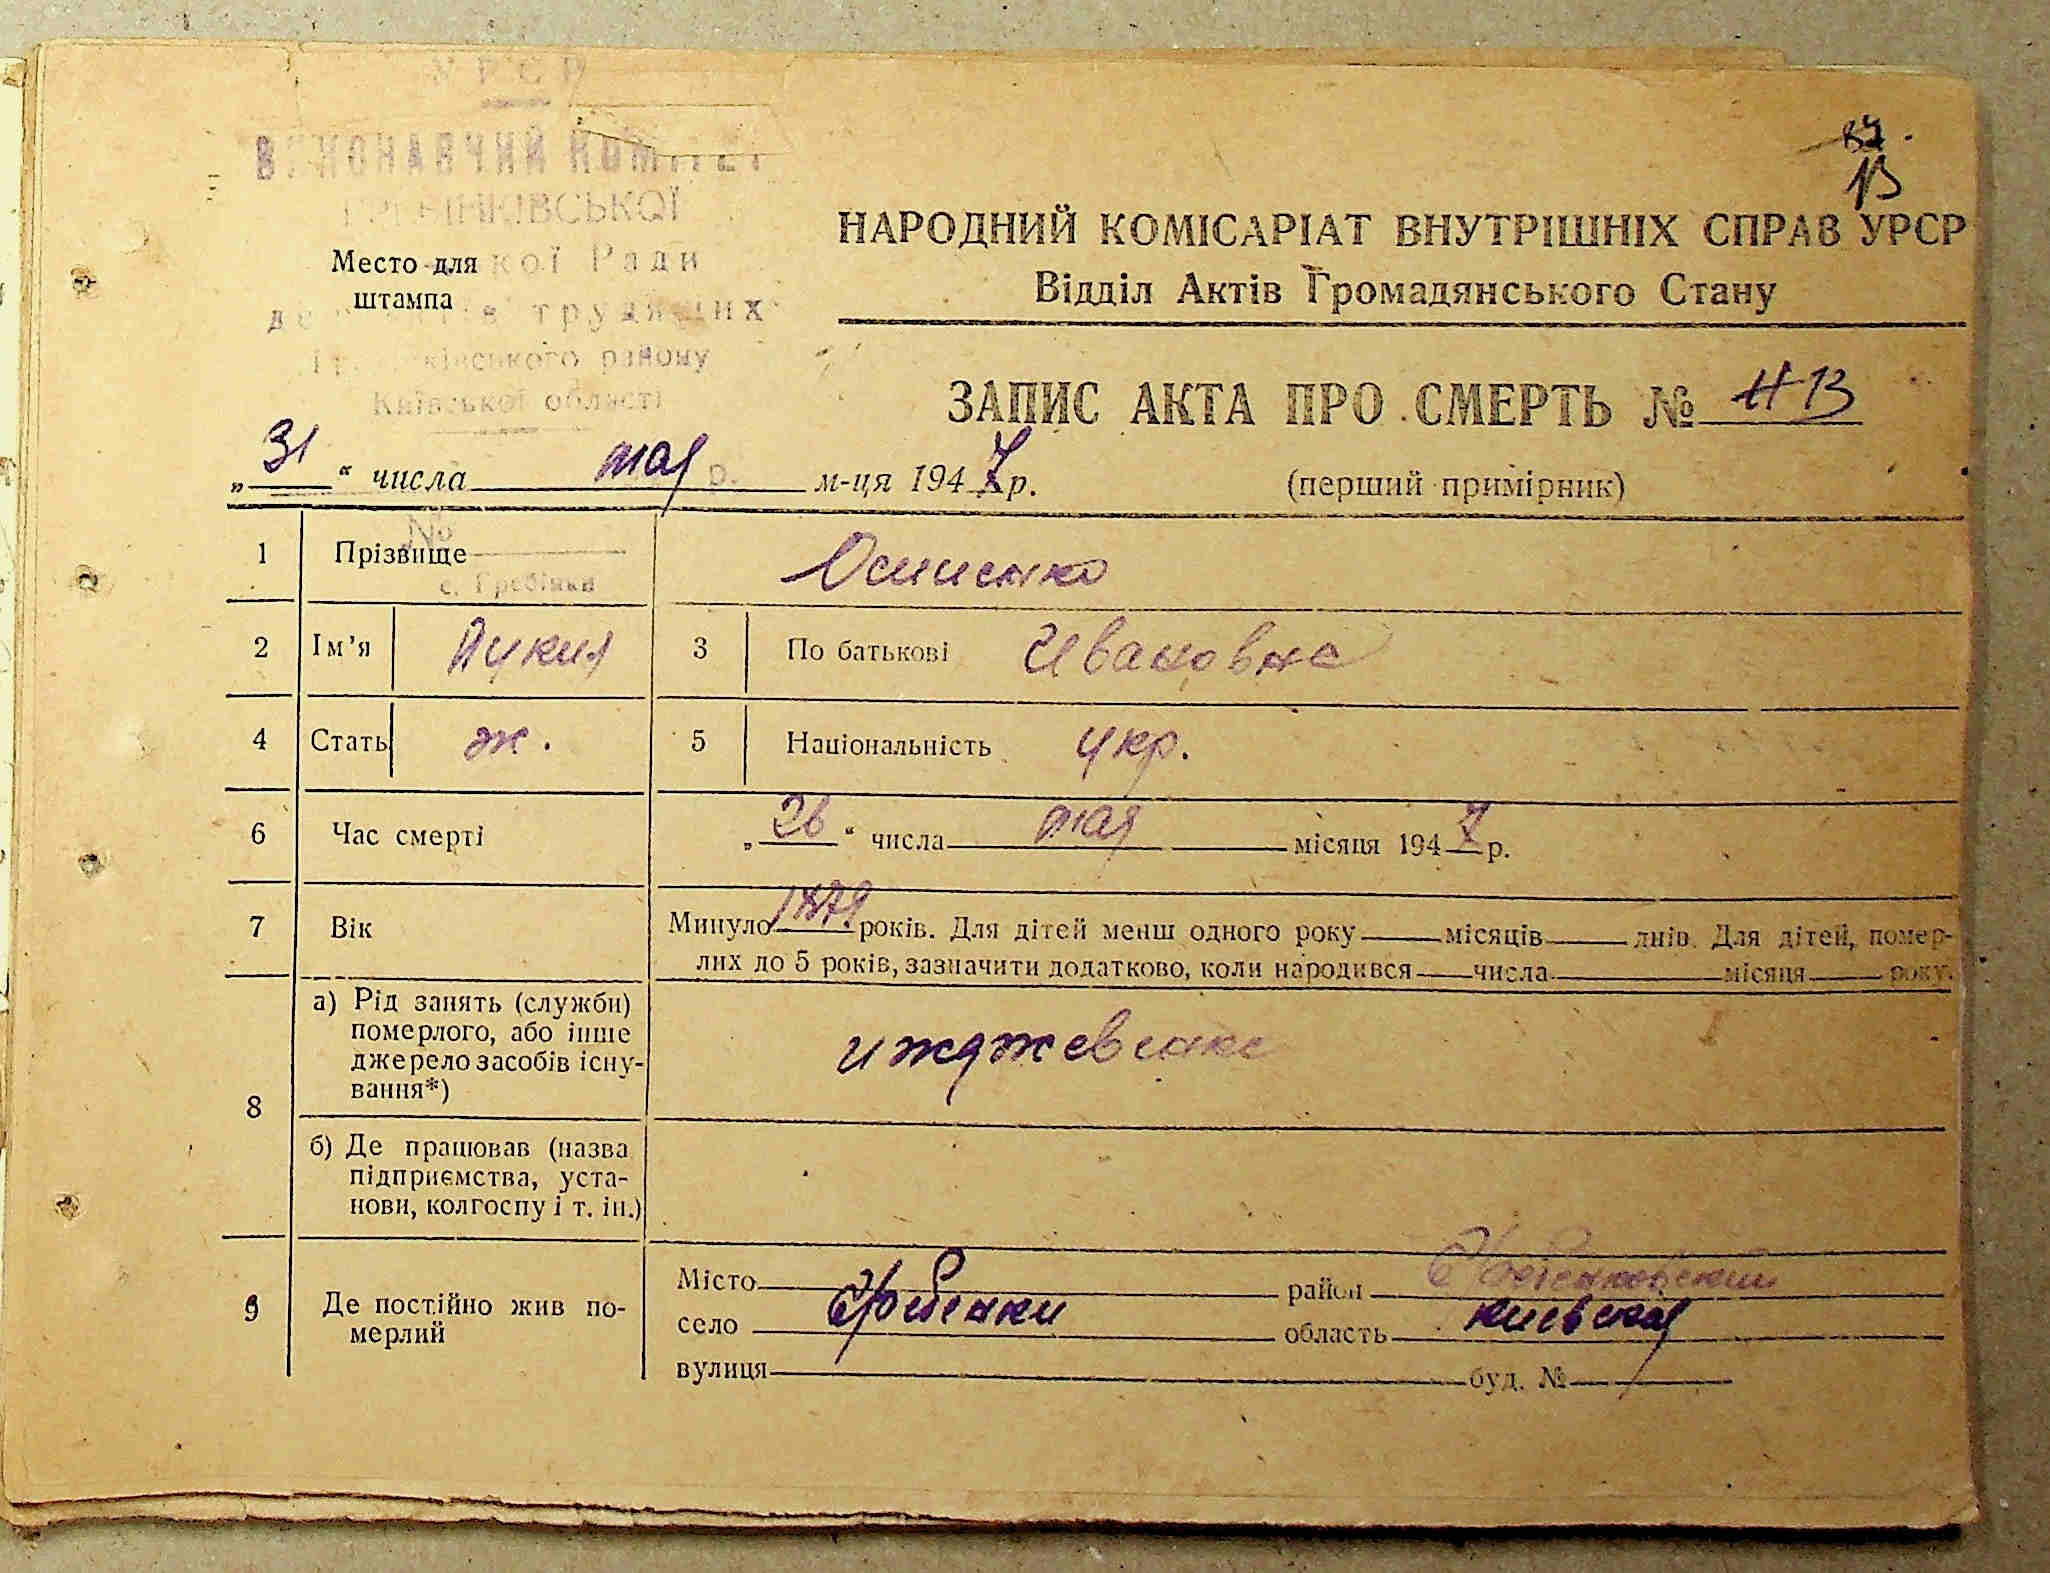 УРСР
ВИКОНАВЧИЙ КОМІТЕТ
ГРЕБІНКІВСЬКОЇ
кої Ради
трудящих
району
Київської області
Место для
штампа
№
с. Гребінки
13
НАРОДНИЙ КОМІСАРІАТ ВНУТРІШНІХ СПРАВ УРСР
Відділ Актів Громадянського Стану
ЗАПИС АКТА ПРО СМЕРТЬ № 13
„31“ числа мая м-ця 1947 р.
(перший примірник)
1 Прізвище Осипенко
2 Ім'я Лукия 3 По батькові Ивановна
4 Стать ж. 5 Національність укр.
6 Час смерті „26“ числа мая місяця 1947 р.
7 Вік Минуло 1879 років. Для дітей менш одного року місяців днів. Для дітей, помер-
лих до 5 років, зазначити додатково, коли народився числа місяця року.
8 а) Рід занять (служби)
померлого, або інше
джерело засобів існу-
вання*)
ижджевенка
б) Де працював (назва
підприємства, уста-
нови, колгоспу і т. ін.)
9 Де постійно жив по-
мерлий
Місто район Гребенковский
село Гребенки область Киевская
вулиця буд. №